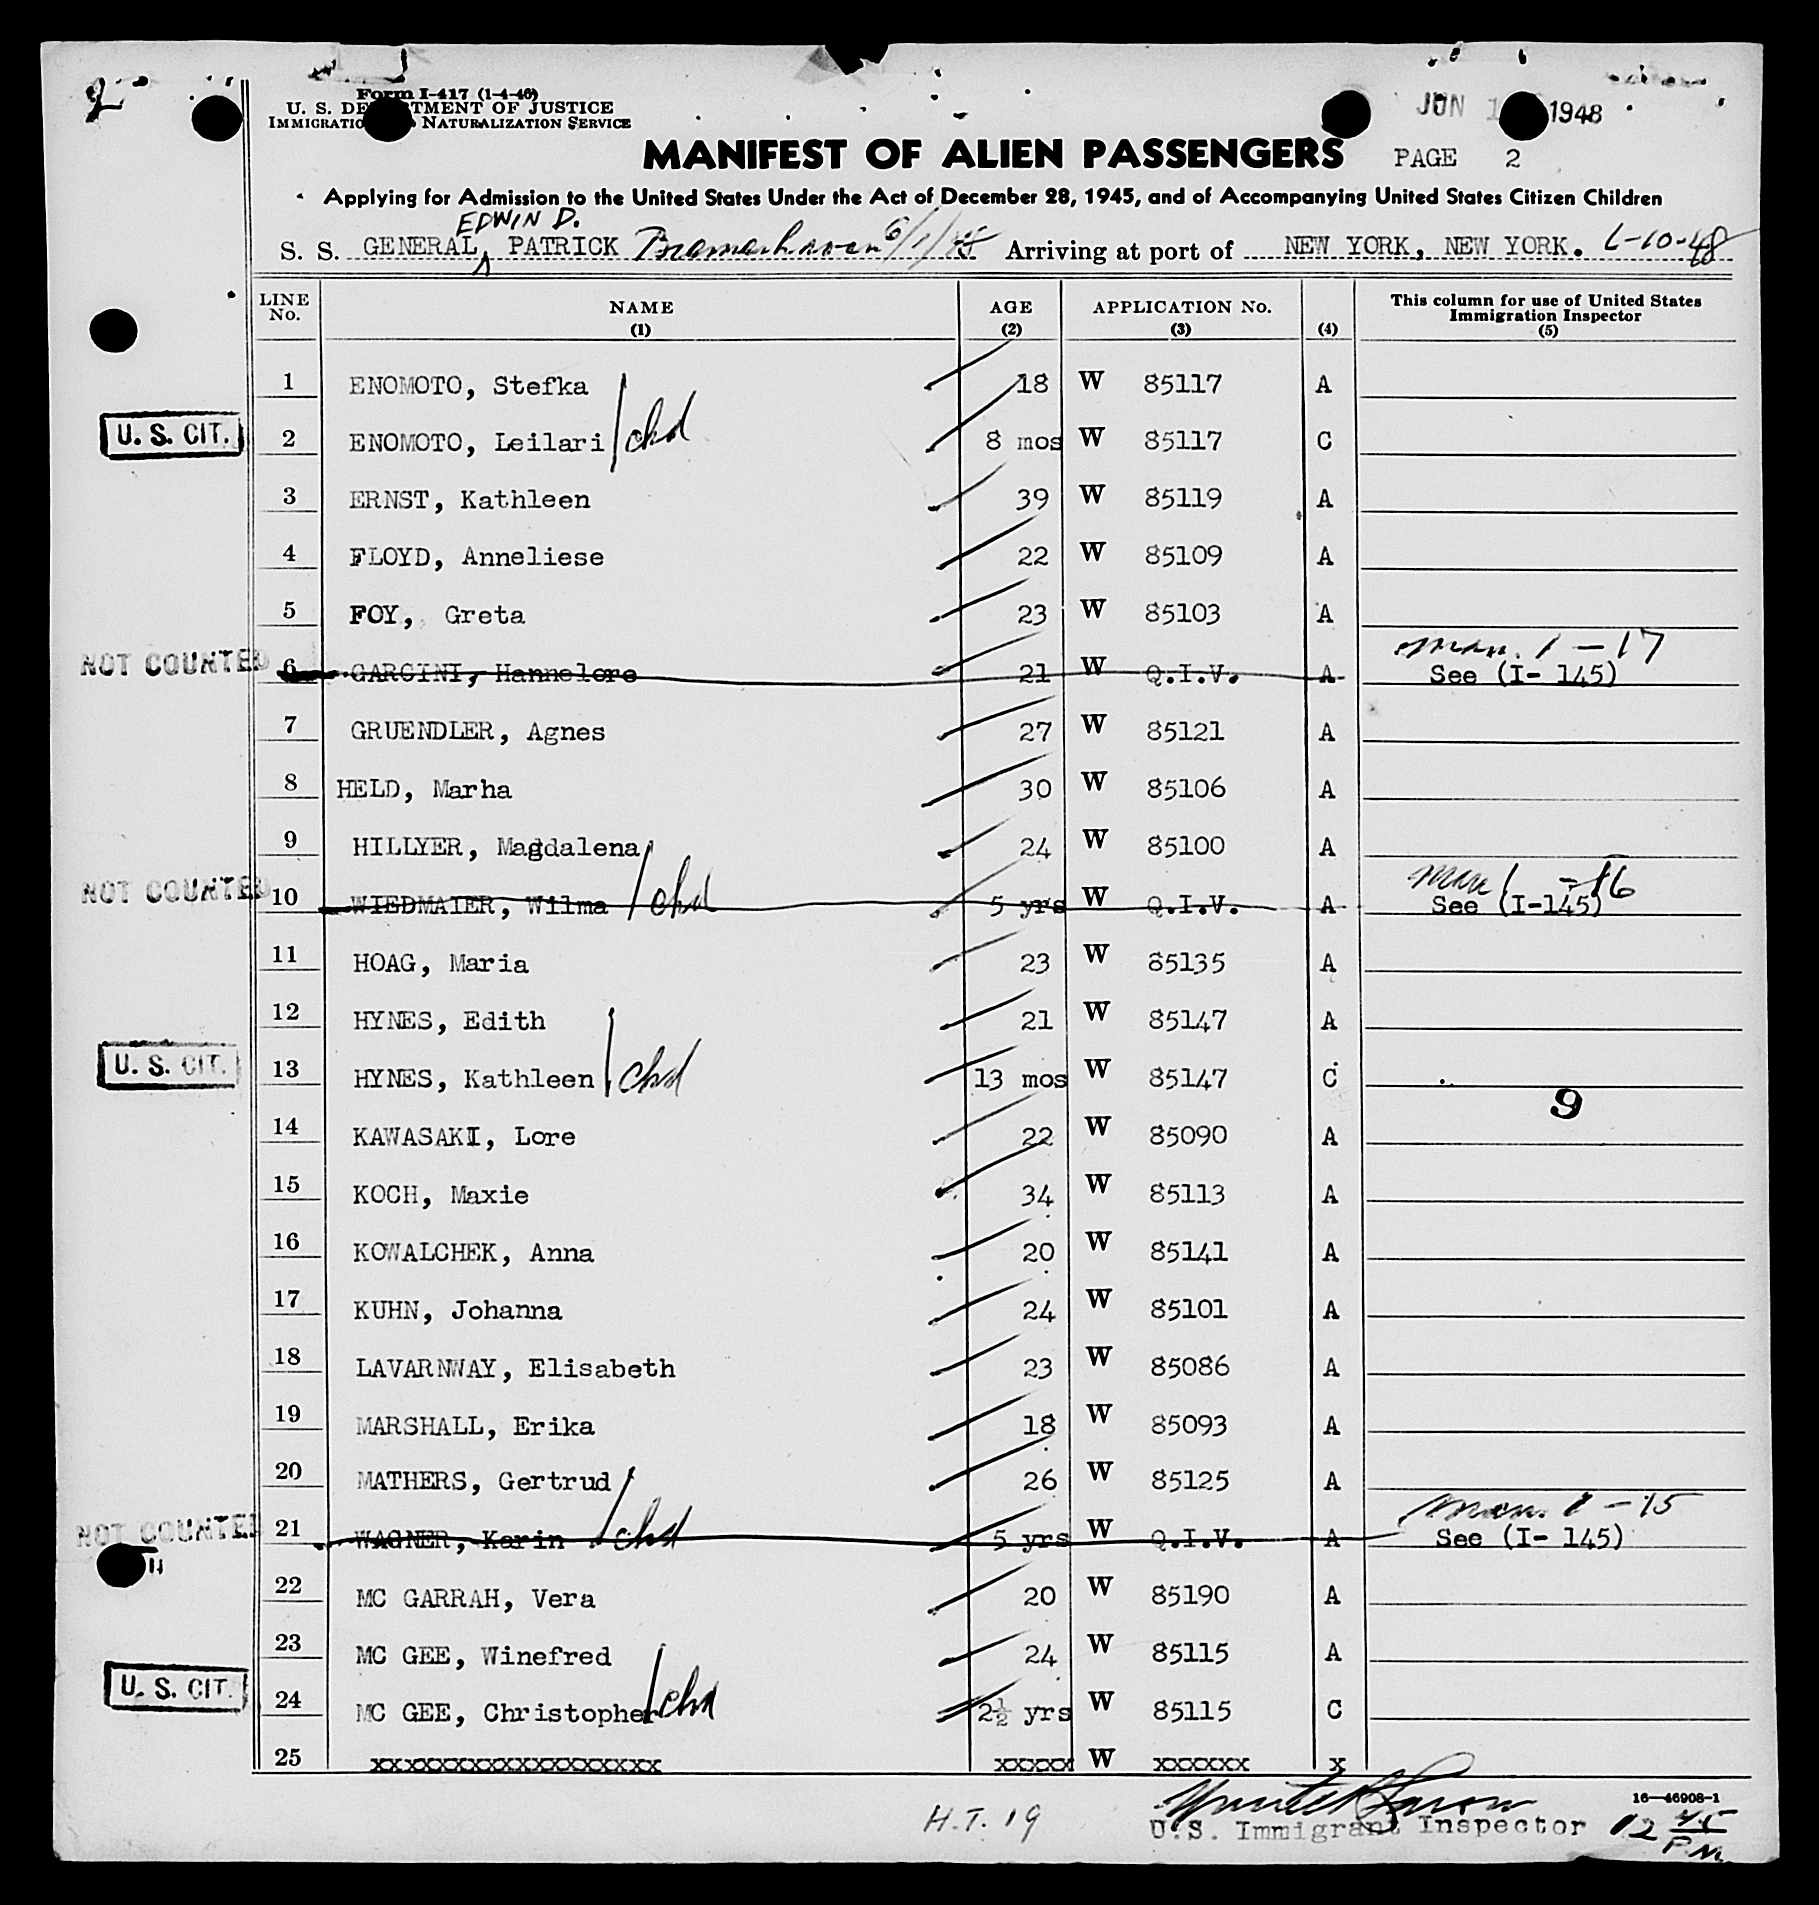 2
Form I-417 (1-4-46)
U. S. DE TMENT OF JUSTICE
IMMIGRATIO NATURALIZATION SERVICE
JUN 1 1948
MANIFEST OF ALIEN PASSENGERS PAGE 2
Applying for Admission to the United States Under the Act of December 28, 1945, and of Accompanying United States Citizen Children
EDWIN D.
S. S. GENERAL PATRICK Bremerhaven 6/1/48 Arriving at port of NEW YORK, NEW YORK. 6-10-48
LINE No. NAME (1) AGE (2) APPLICATION No. (3) (4) This column for use of United States Immigration Inspector (5)
1 ENOMOTO, Stefka 18 W 85117 A
U. S. CIT. 2 ENOMOTO, Leilari chd 8 mos W 85117 C
3 ERNST, Kathleen 39 W 85119 A
4 FLOYD, Anneliese 22 W 85109 A
5 FOY, Greta 23 W 85103 A
man. 1-17
NOT COUNTED 6 GARCINI, Hannelore 21 W Q.I.V. A See (I- 145)
7 GRUENDLER, Agnes 27 W 85121 A
8 HELD, Marha 30 W 85106 A
9 HILLYER, Magdalena 24 W 85100 A
man 1 -16
NOT COUNTED 10 WIEDMAIER, Wilma chd 5 yrs W Q.I.V. A See (I-145)
11 HOAG, Maria 23 W 85135 A
12 HYNES, Edith 21 W 85147 A
U. S. CIT. 13 HYNES, Kathleen chd 13 mos W 85147 C
9
14 KAWASAKI, Lore 22 W 85090 A
15 KOCH, Maxie 34 W 85113 A
16 KOWALCHEK, Anna 20 W 85141 A
17 KUHN, Johanna 24 W 85101 A
18 LAVARNWAY, Elisabeth 23 W 85086 A
19 MARSHALL, Erika 18 W 85093 A
20 MATHERS, Gertrud 26 W 85125 A
man. 1-15
NOT COUNTED 21 WAGNER, Karin chd 5 yrs W Q.I.V. A See (I- 145)
22 MC GARRAH, Vera 20 W 85190 A
23 MC GEE, Winefred 24 W 85115 A
U. S. CIT. 24 MC GEE, Christopher chd 2½ yrs W 85115 C
25 xxxxxxxxxxxxxxxxxx xxxxx W xxxxxx x
16—46908-1
H.T. 19 U.S. Immigrant Inspector 12 45 P.M.